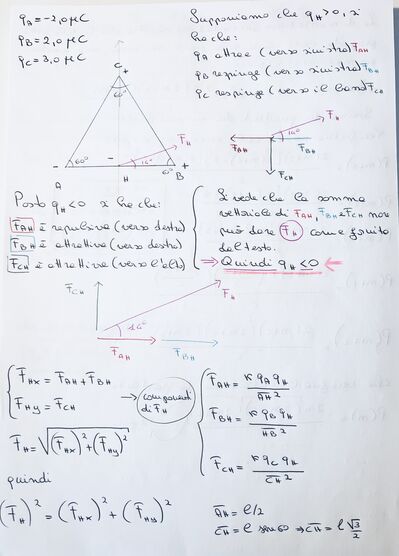 q_A = -2,0 μC
q_B = 2,0 μC
q_C = 3,0 μC
Supponiamo che q_H > 0, si
ha che:
q_A attrae (verso sinistra) F_AH
q_B respinge (verso sinistra) F_BH
q_C respinge (verso il basso) F_CH
C +
60°
F_H
60°
16°
60°
-
-
+
A
H
B
F_H
16°
F_AH
F_BH
F_CH
Posto q_H < 0 si ha che:
F_AH è repulsiva (verso destra)
F_BH è attrattiva (verso destra)
F_CH è attrattiva (verso l'alto)
Si vede che la somma
vettoriale di F_AH, F_BH e F_CH non
può dare F_H come fornito
dal testo.
⇒ Quindi q_H ≤ 0
F_CH
F_H
16°
F_AH
F_BH
F_Hx = F_AH + F_BH
F_Hy = F_CH
→ componenti
di F_H
F_H = √((F_Hx)² + (F_Hy)²)
quindi
(F_H)² = (F_Hx)² + (F_Hy)²
F_AH = K q_A q_H / AH²
F_BH = K q_B q_H / HB²
F_CH = K q_C q_H / CH²
AH = l/2
CH = l sen60 ⇒ CH = l √3/2